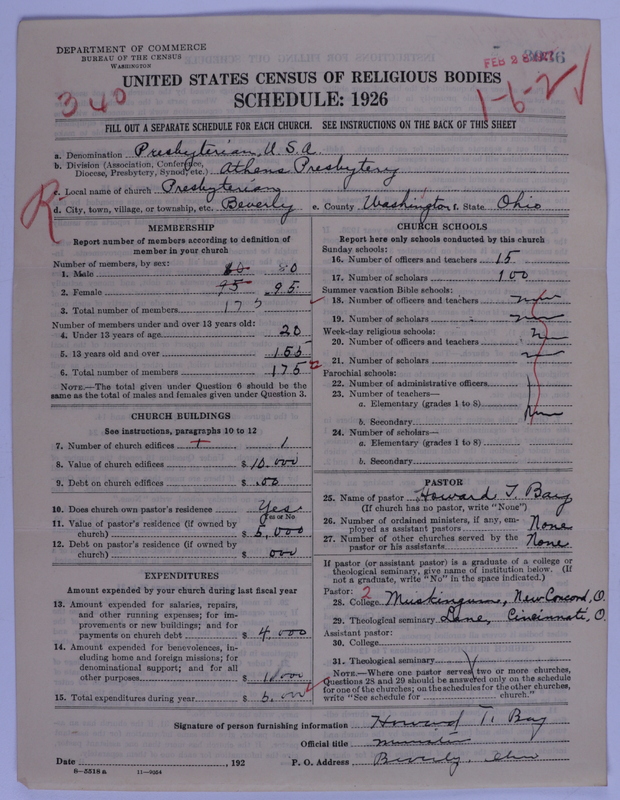 DEPARTMENT OF COMMERCE
BUREAU OF THE CENSUS
WASHINGTON
FEB 28
340
1-6-2 ✓
UNITED STATES CENSUS OF RELIGIOUS BODIES
SCHEDULE: 1926
FILL OUT A SEPARATE SCHEDULE FOR EACH CHURCH. SEE INSTRUCTIONS ON THE BACK OF THIS SHEET
a. Denomination Presbyterian, U.S.A.
b. Division (Association, Conference, Diocese, Presbytery, Synod, etc.) Athens Presbytery
R
c. Local name of church Presbyterian
d. City, town, village, or township, etc. Beverly e. County Washington f. State Ohio
MEMBERSHIP
Report number of members according to definition of
member in your church
Number of members, by sex:
1. Male 80 80
2. Female 95 95
3. Total number of members 175
Number of members under and over 13 years old:
4. Under 13 years of age 20
5. 13 years old and over 155
6. Total number of members 175
NOTE.—The total given under Question 6 should be the
same as the total of males and females given under Question 3.
CHURCH BUILDINGS
See instructions, paragraphs 10 to 12
7. Number of church edifices 1
8. Value of church edifices $10.000
9. Debt on church edifices $.00
10. Does church own pastor's residence Yes
Yes or No
11. Value of pastor's residence (if owned by
church) $5,000
12. Debt on pastor's residence (if owned by
church) $000
EXPENDITURES
Amount expended by your church during last fiscal year
13. Amount expended for salaries, repairs,
and other running expenses; for im-
provements or new buildings; and for
payments on church debt $4,000
14. Amount expended for benevolences, in-
cluding home and foreign missions; for
denominational support; and for all
other purposes $1,000
15. Total expenditures during year $5.000
CHURCH SCHOOLS
Report here only schools conducted by this church
Sunday schools:
16. Number of officers and teachers 15
17. Number of scholars 100
Summer vacation Bible schools:
18. Number of officers and teachers
19. Number of scholars
Week-day religious schools:
20. Number of officers and teachers
21. Number of scholars
Parochial schools:
22. Number of administrative officers
23. Number of teachers—
a. Elementary (grades 1 to 8)
b. Secondary
24. Number of scholars—
a. Elementary (grades 1 to 8)
b. Secondary
PASTOR
25. Name of pastor Howard T. Bay
(If church has no pastor, write "None")
26. Number of ordained ministers, if any, em-
ployed as assistant pastors None
27. Number of other churches served by the
pastor or his assistants None
If pastor (or assistant pastor) is a graduate of a college or
theological seminary, give name of institution below. (If
not a graduate, write "No" in the space indicated.)
Pastor: 2
28. College Muskingum, New Concord, O.
29. Theological seminary Lane, Cincinnati, O.
Assistant pastor:
30. College
31. Theological seminary
NOTE.—Where one pastor serves two or more churches,
Questions 28 and 29 should be answered only on the schedule
for one of the churches; on the schedules for the other churches,
write "See schedule for church."
Signature of person furnishing information Howard T. Bay
Official title Minister
Date , 192 P. O. Address Beverly, Ohio
6—5518a 11—9054